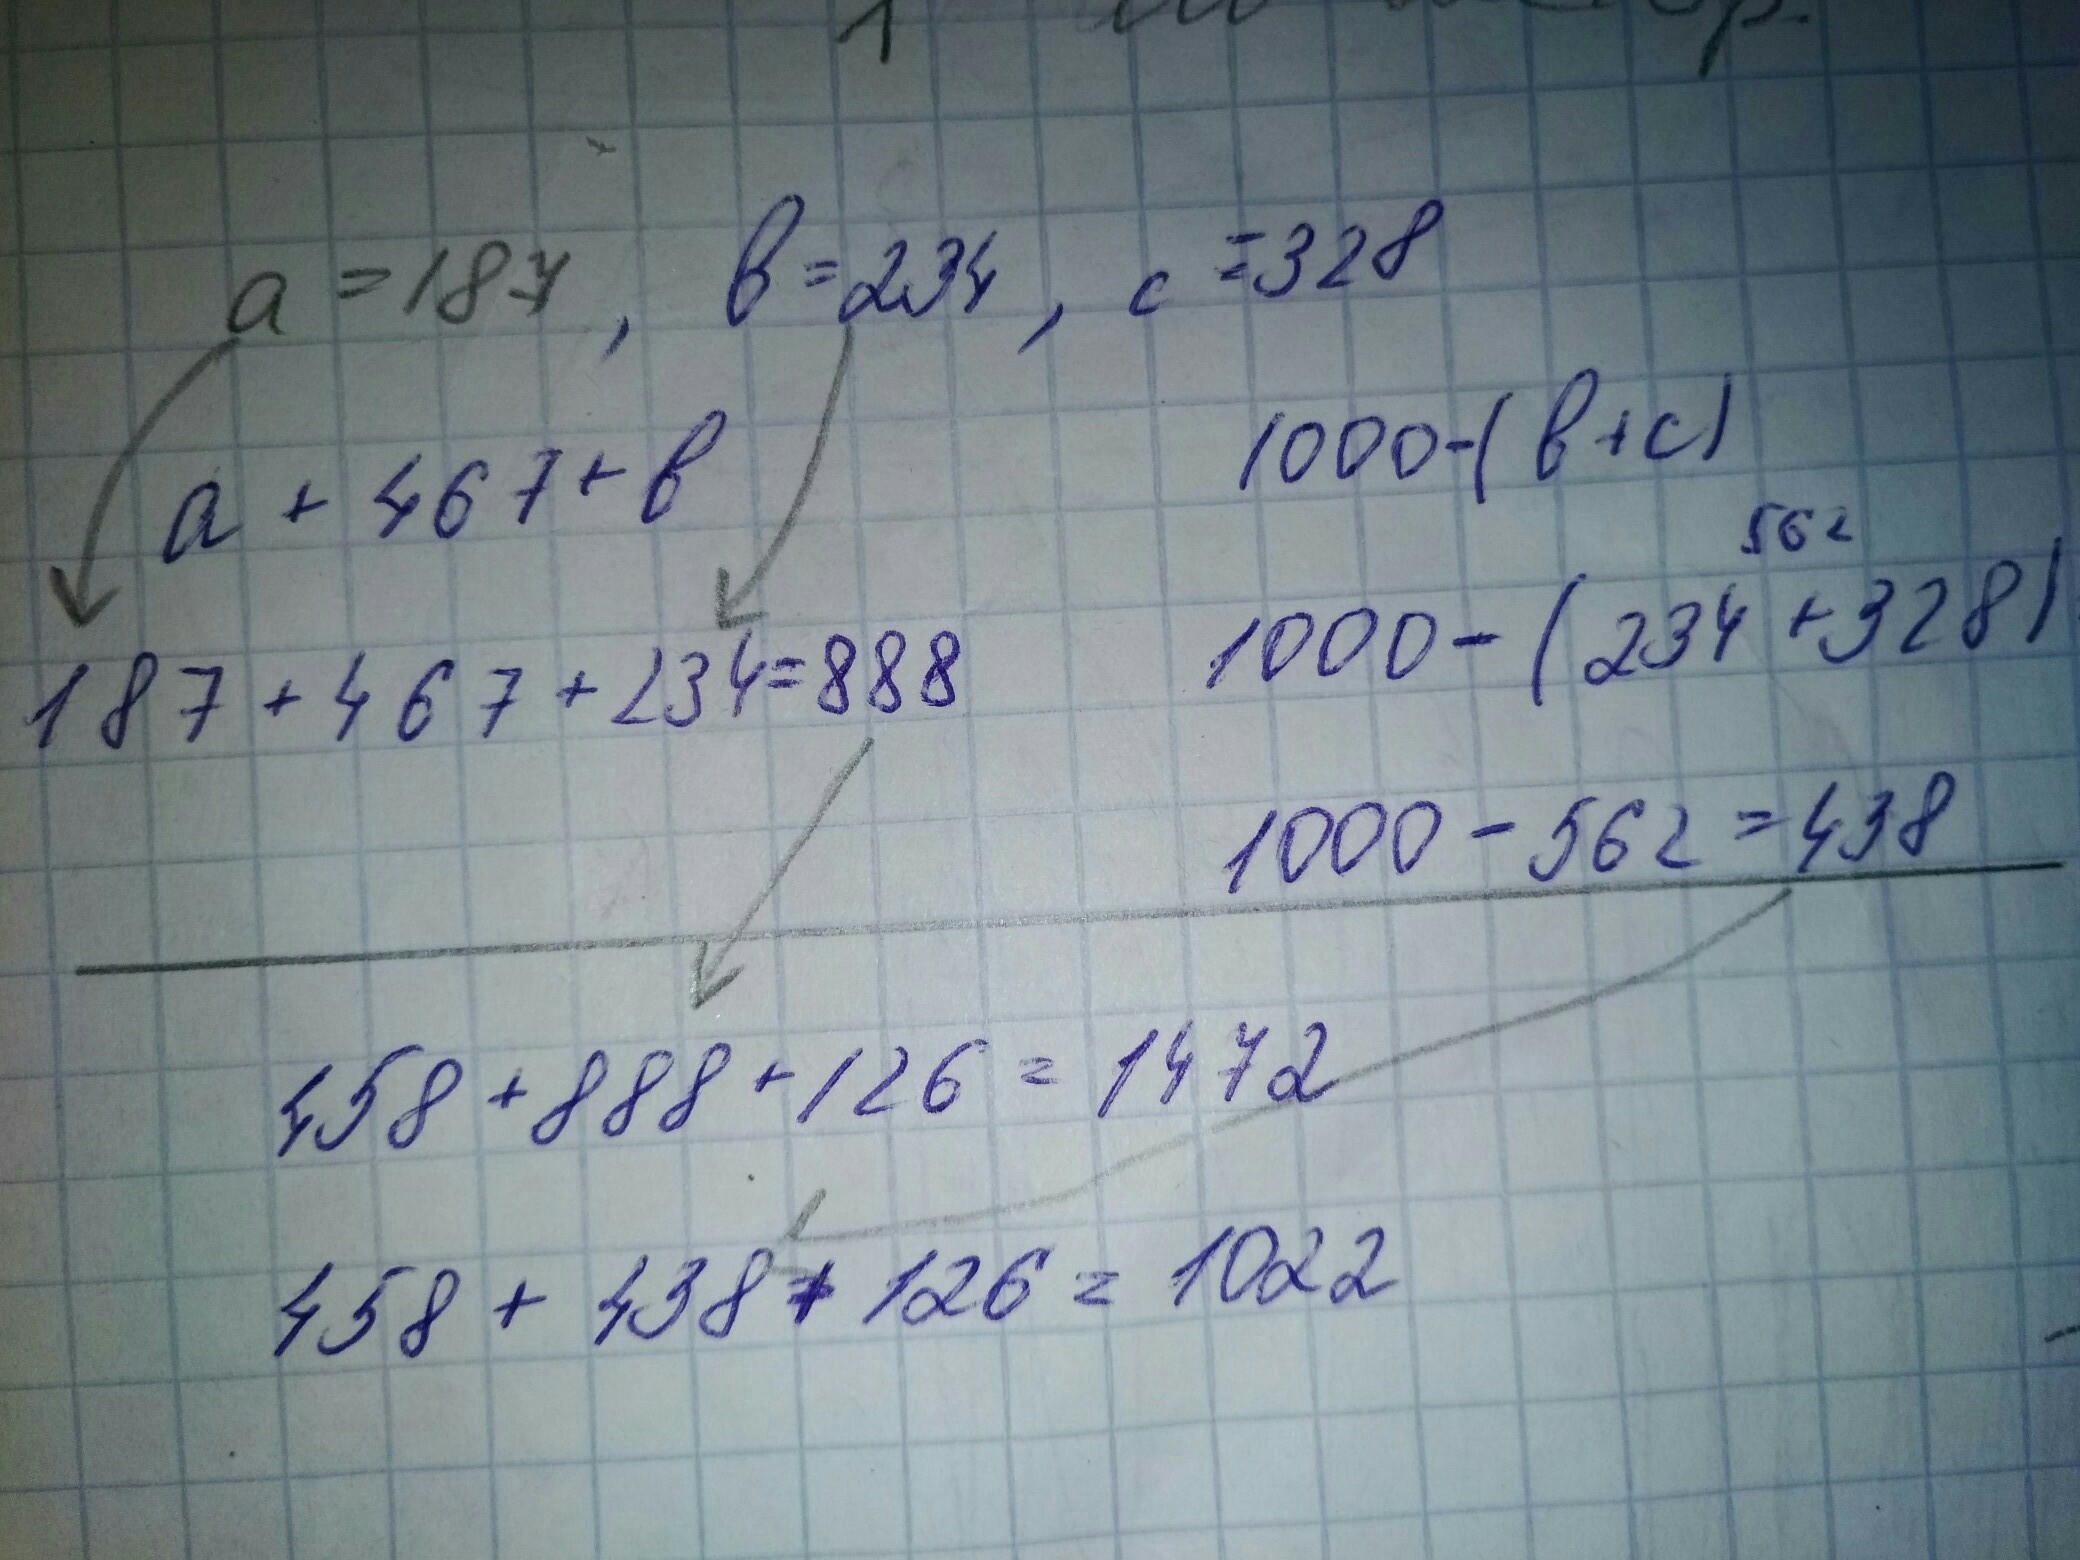 a = 187, в = 234, с = 328
a + 467 + в
187 + 467 + 234 = 888
1000 - (в + с)
562
1000 - (234 + 328)
1000 - 562 = 438
458 + 888 + 126 = 1472
458 + 438 + 126 = 1022